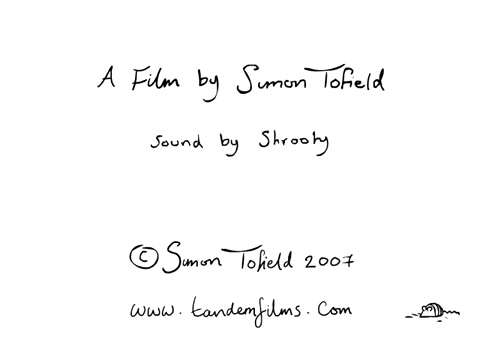 A Film by Simon Tofield
Sound by Shrooty
© Simon Tofield 2007
www.tandemfilms.com